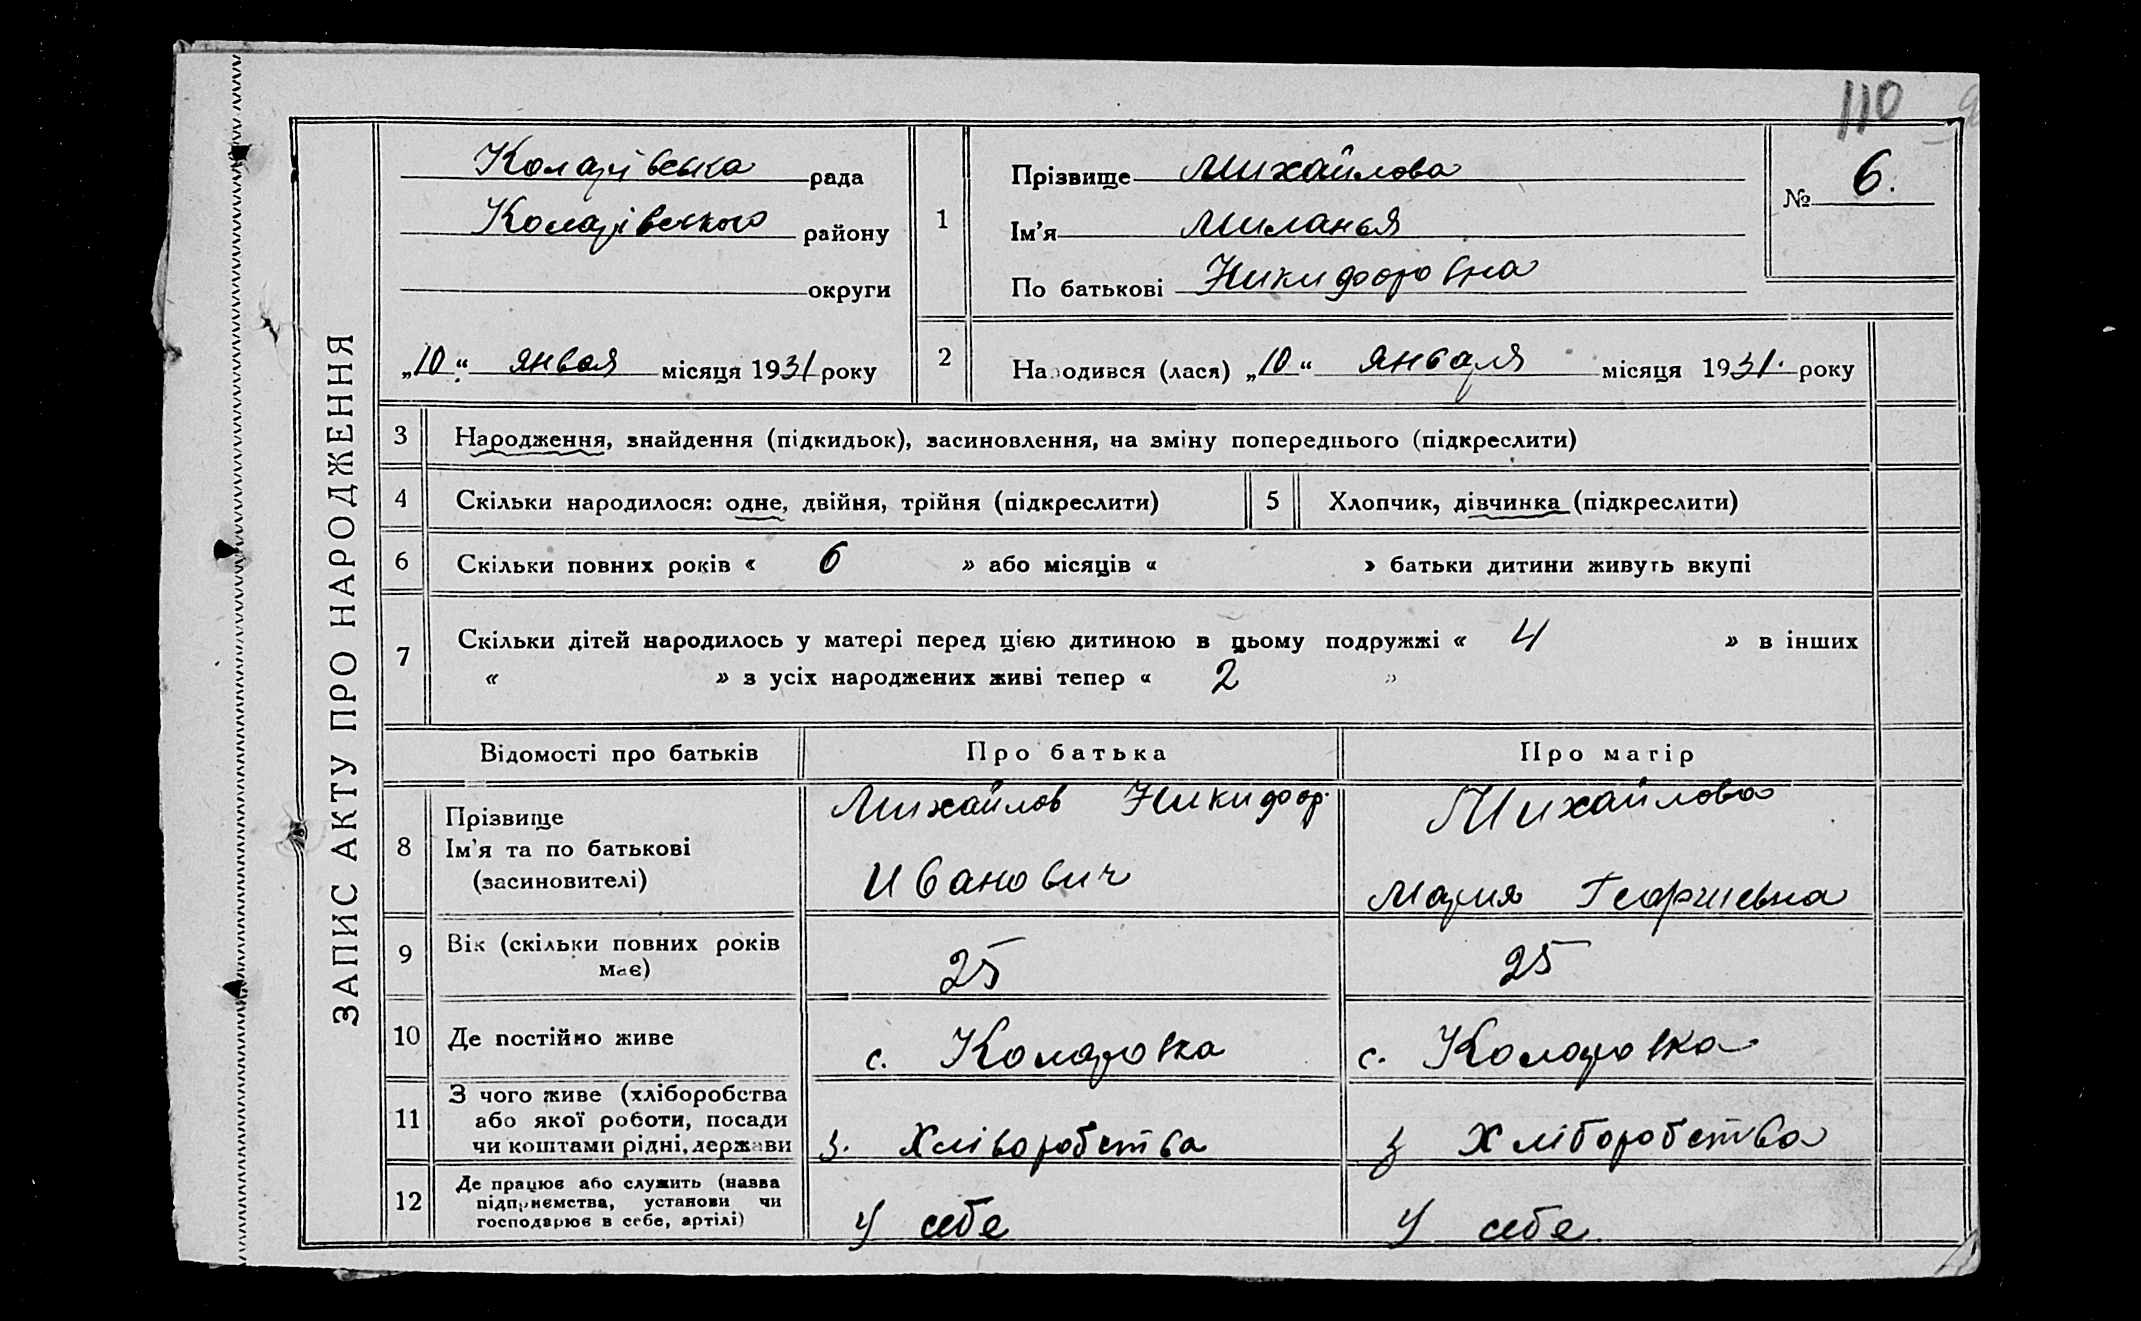 110
ЗАПИС АКТУ ПРО НАРОДЖЕННЯ
Коларівська рада
Коларівського району
округи
„10“ янвая місяця 1931 року
1
Прізвище Михайлова
Ім'я Миланья
По батькові Никифоровна
№ 6.
2
Народився (лася) „10“ января місяця 1931. року
3 Народження, знайдення (підкидьок), засиновлення, на зміну попереднього (підкреслити)
4 Скільки народилося: одне, двійня, трійня (підкреслити) 5 Хлопчик, дівчинка (підкреслити)
6 Скільки повних років « 6 » або місяців « » батьки дитини живуть вкупі
7 Скільки дітей народилось у матері перед цією дитиною в цьому подружжі « 4 » в інших
« » з усіх народжених живі тепер « 2 »
Відомості про батьків Про батька Про матір
8 Прізвище
Ім'я та по батькові
(засиновителі)
Михайлов Никифор.
Иванович
Михайлова
Мария Георгиевна
9 Вік (скільки повних років
має)
25
25
10 Де постійно живе с. Коларовка с. Коларовка
11 З чого живе (хліборобства
або якої роботи, посади
чи коштами рідні, держави
з. Хліборобства
з Хліборобства
12 Де працює або служить (назва
підприємства, установи чи
господарює в себе, артілі)
У себе
У себе.